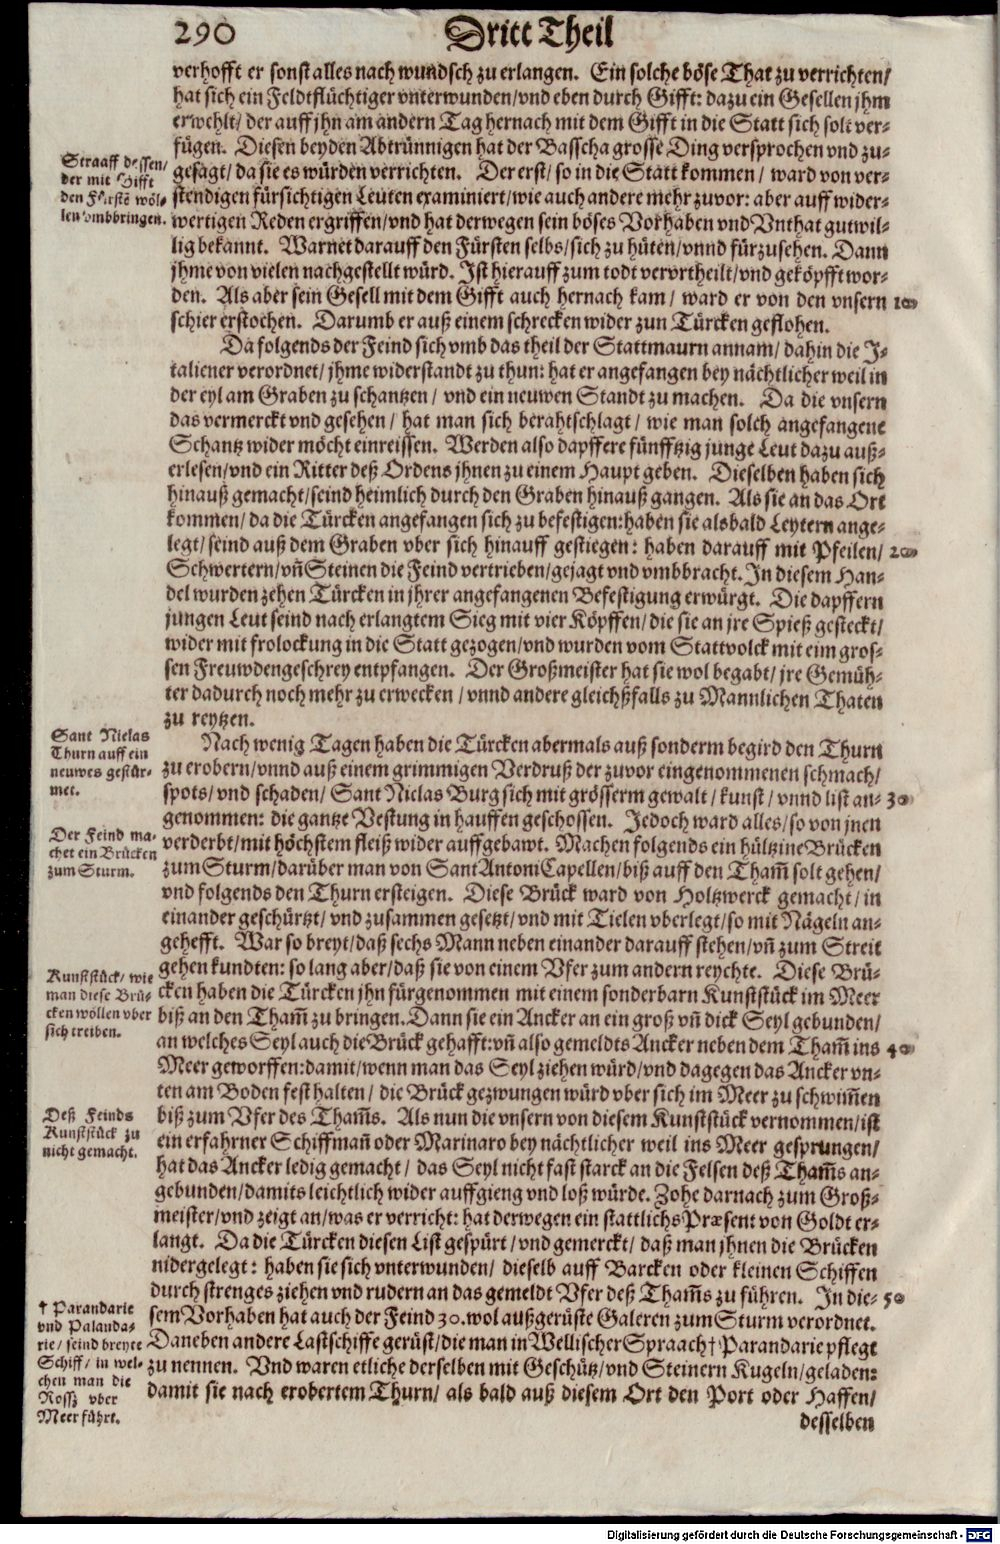 290 Dritt Theil
verhofft er sonst alles nach wundsch zu erlangen. Ein solche böse That zu verrichten/
hat sich ein Feldtflüchtiger vnterwunden/vnd eben durch Gifft: dazu ein Gesellen jhm
erwehlt/ der auff jhn am andern Tag hernach mit dem Gifft in die Statt sich solt ver-
fügen. Diesen beyden Abtrünnigen hat der Basscha grosse Ding versprochen vnd zu-
gesagt/ da sie es würden verrichten. Der erst/ so in die Statt kommen/ ward von ver-
stendigen fürsichtigen Leuten examiniert/wie auch andere mehr zuvor: aber auff wider-
wertigen Reden ergriffen/vnd hat derwegen sein böses Vorhaben vnd Vnthat gutwil-
lig bekannt. Warnet darauff den Fürsten selbs/sich zu hüten/vnnd fürzusehen. Dann
jhme von vielen nachgestellt würd. Ist hierauff zum todt vervrtheilt/vnd geköpfft wor-
den. Als aber sein Gesell mit dem Gifft auch hernach kam/ ward er von den vnsern 10
schier erstochen. Darumb er auß einem schrecken wider zun Türcken geflohen.
Straaff dessen/
der mit Gifft
den Fürstē wöl-
len vmbbringen.
Da folgends der Feind sich vmb das theil der Stattmaurn annam/ dahin die I-
taliener verordnet/ jhme widerstandt zu thun: hat er angefangen bey nächtlicher weil in
der eyl am Graben zu schantzen/ vnd ein neuwen Standt zu machen. Da die vnsern
das vermerckt vnd gesehen/ hat man sich berahtschlagt/ wie man solch angefangene
Schantz wider möcht einreissen. Werden also dapffere fünfftzig junge Leut dazu auß-
erlesen/vnd ein Ritter deß Ordens jhnen zu einem Haupt geben. Dieselben haben sich
hinauß gemacht/seind heimlich durch den Graben hinauß gangen. Als sie an das Ort
kommen/ da die Türcken angefangen sich zu befestigen: haben sie alsbald Leytern ange-
legt/ seind auß dem Graben vber sich hinauff gestiegen: haben darauff mit Pfeilen/ 20
Schwertern/vñ Steinen die Feind vertrieben/gejagt vnd vmbbracht. In diesem Han-
del wurden zehen Türcken in jhrer angefangenen Befestigung erwürgt. Die dapffern
jungen Leut seind nach erlangtem Sieg mit vier Köpffen/ die sie an jre Spieß gesteckt/
wider mit frolockung in die Statt gezogen/vnd wurden vom Stattvolck mit eim gros-
sen Freuwdengeschrey entpfangen. Der Großmeister hat sie wol begabt/ jre Gemüh-
ter dadurch noch mehr zu erwecken/ vnnd andere gleichßfalls zu Mannlichen Thaten
zu reytzen.
Sant Nielas
Thurn auff ein
neuwes gestür-
met.
Nach wenig Tagen haben die Türcken abermals auß sonderm begird den Thurn
zu erobern/vnnd auß einem grimmigen Verdruß der zuvor eingenommenen schmach/
spots/ vnd schaden/ Sant Niclas Burg sich mit grösserm gewalt/ kunst/ vnnd list an- 30
genommen: die gantze Vestung in hauffen geschossen. Jedoch ward alles/so von jnen
verderbt/mit höchstem fleiß wider auffgebawt. Machen folgends ein hültzine Brücken
zum Sturm/darüber man von Sant Antoni Capellen/biß auff den Tham̃ solt gehen/
vnd folgends den Thurn ersteigen. Diese Brück ward von Holtzwerck gemacht/ in
einander geschürtzt/ vnd zusammen gesetzt/vnd mit Tielen vberlegt/so mit Nägeln an-
gehefft. War so breyt/daß sechs Mann neben einander darauff stehen/vñ zum Streit
gehen kundten: so lang aber/daß sie von einem Vfer zum andern reychte. Diese Brü-
cken haben die Türcken jhn fürgenommen mit einem sonderbarn Kunststück im Meer
biß an den Tham̃ zu bringen. Dann sie ein Ancker an ein groß vñ dick Seyl gebunden/
an welches Seyl auch die Brück gehafft: vñ also gemeldts Ancker neben dem Tham̃ ins 40
Meer geworffen: damit/wenn man das Seyl ziehen würd/vnd dagegen das Ancker vn-
ten am Boden fest halten/ die Brück gezwungen würd vber sich im Meer zu schwim̃en
biß zum Vfer des Tham̃s. Als nun die vnsern von diesem Kunststück vernommen/ist
ein erfahrner Schiffmañ oder Marinaro bey nächtlicher weil ins Meer gesprungen/
hat das Ancker ledig gemacht/ das Seyl nicht fast starck an die Felsen deß Tham̃s an-
gebunden/damits leichtlich wider auffgieng vnd loß würde. Zohe darnach zum Groß-
meister/vnd zeigt an/was er verricht: hat derwegen ein stattlichs Præsent von Goldt er-
langt. Da die Türcken diesen List gespürt/vnd gemerckt/ daß man jhnen die Brücken
nidergelegt: haben sie sich vnterwunden/ dieselb auff Barcken oder kleinen Schiffen
durch strenges ziehen vnd rudern an das gemeldt Vfer deß Tham̃s zu führen. In die- 50
sem Vorhaben hat auch der Feind 30. wol außgerüste Galeren zum Sturm verordnet.
Daneben andere Lastschiffe gerüst/die man in Wellischer Spraach † Parandarie pflegt
zu nennen. Vnd waren etliche derselben mit Geschütz/vnd Steinern Kugeln/geladen:
damit sie nach erobertem Thurn/ als bald auß diesem Ort den Port oder Haffen/
desselben
Der Feind ma-
chet ein Brücken
zum Sturm.
Kunststück/ wie
man diese Brü-
cken wöllen vber
sich treiben.
Deß Feinds
Kunststück zu
nicht gemacht.
† Parandarie
vnd Palanda-
rie/ seind breyte
Schiff/ in wel-
chen man die
Rossz vber
Meer führt.
Digitalisierung gefördert durch die Deutsche Forschungsgemeinschaft - DFG